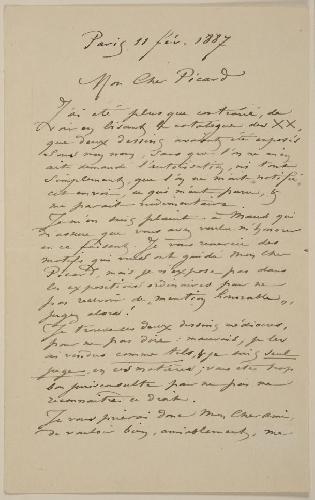 Paris 11 fév. 1887
Mon Cher Picard
J'ai été plus que contrarié, de
voir en lisant le catalogue des XX,
que deux dessins avaient été exposés
sous mon nom, sans que l'on ne m'en
ait demandé l'autorisation, ni tout
simplement, que l'on ne m'ait notifié
cet envoi, ce qui m'aurait paru, &
me paraît rudimentaire.
Je m'en suis plaint à Maus qui
m'assure que vous avez voulu m'honorer
en ce faisant. Je vous remercie des
motifs qui vous ont guidé Mon Cher
Picard, mais je n'expose pas dans
les expositions ordinaires pour ne
pas recevoir de "mention honorable",
jugez alors!
Je trouve ces deux dessins médiocres,
pour ne pas dire: mauvais, je les
ai vendus comme tels, & je suis seul
juge, en ces matières; vous êtes trop
bon jurisconsulte pour ne pas me
reconnaître ce droit.
Je vous prierai donc Mon Cher Ami,
de vouloir bien, amiablement, me